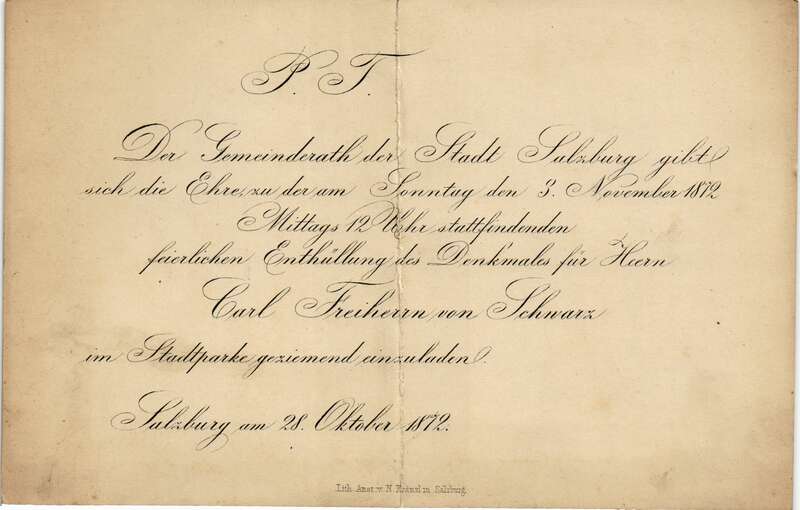 P. T.
Der Gemeinderath der Stadt Salzburg gibt
sich die Ehre, zu der am Sonntag den 3. November 1872
Mittags 12 Uhr stattfindenden
feierlichen Enthüllung des Denkmales für Herrn
Carl Freiherrn von Schwarz
im Stadtparke geziemend einzuladen.
Salzburg am 28. Oktober 1872.
Lith. Anst. v. N. Kränzl in Salzburg.